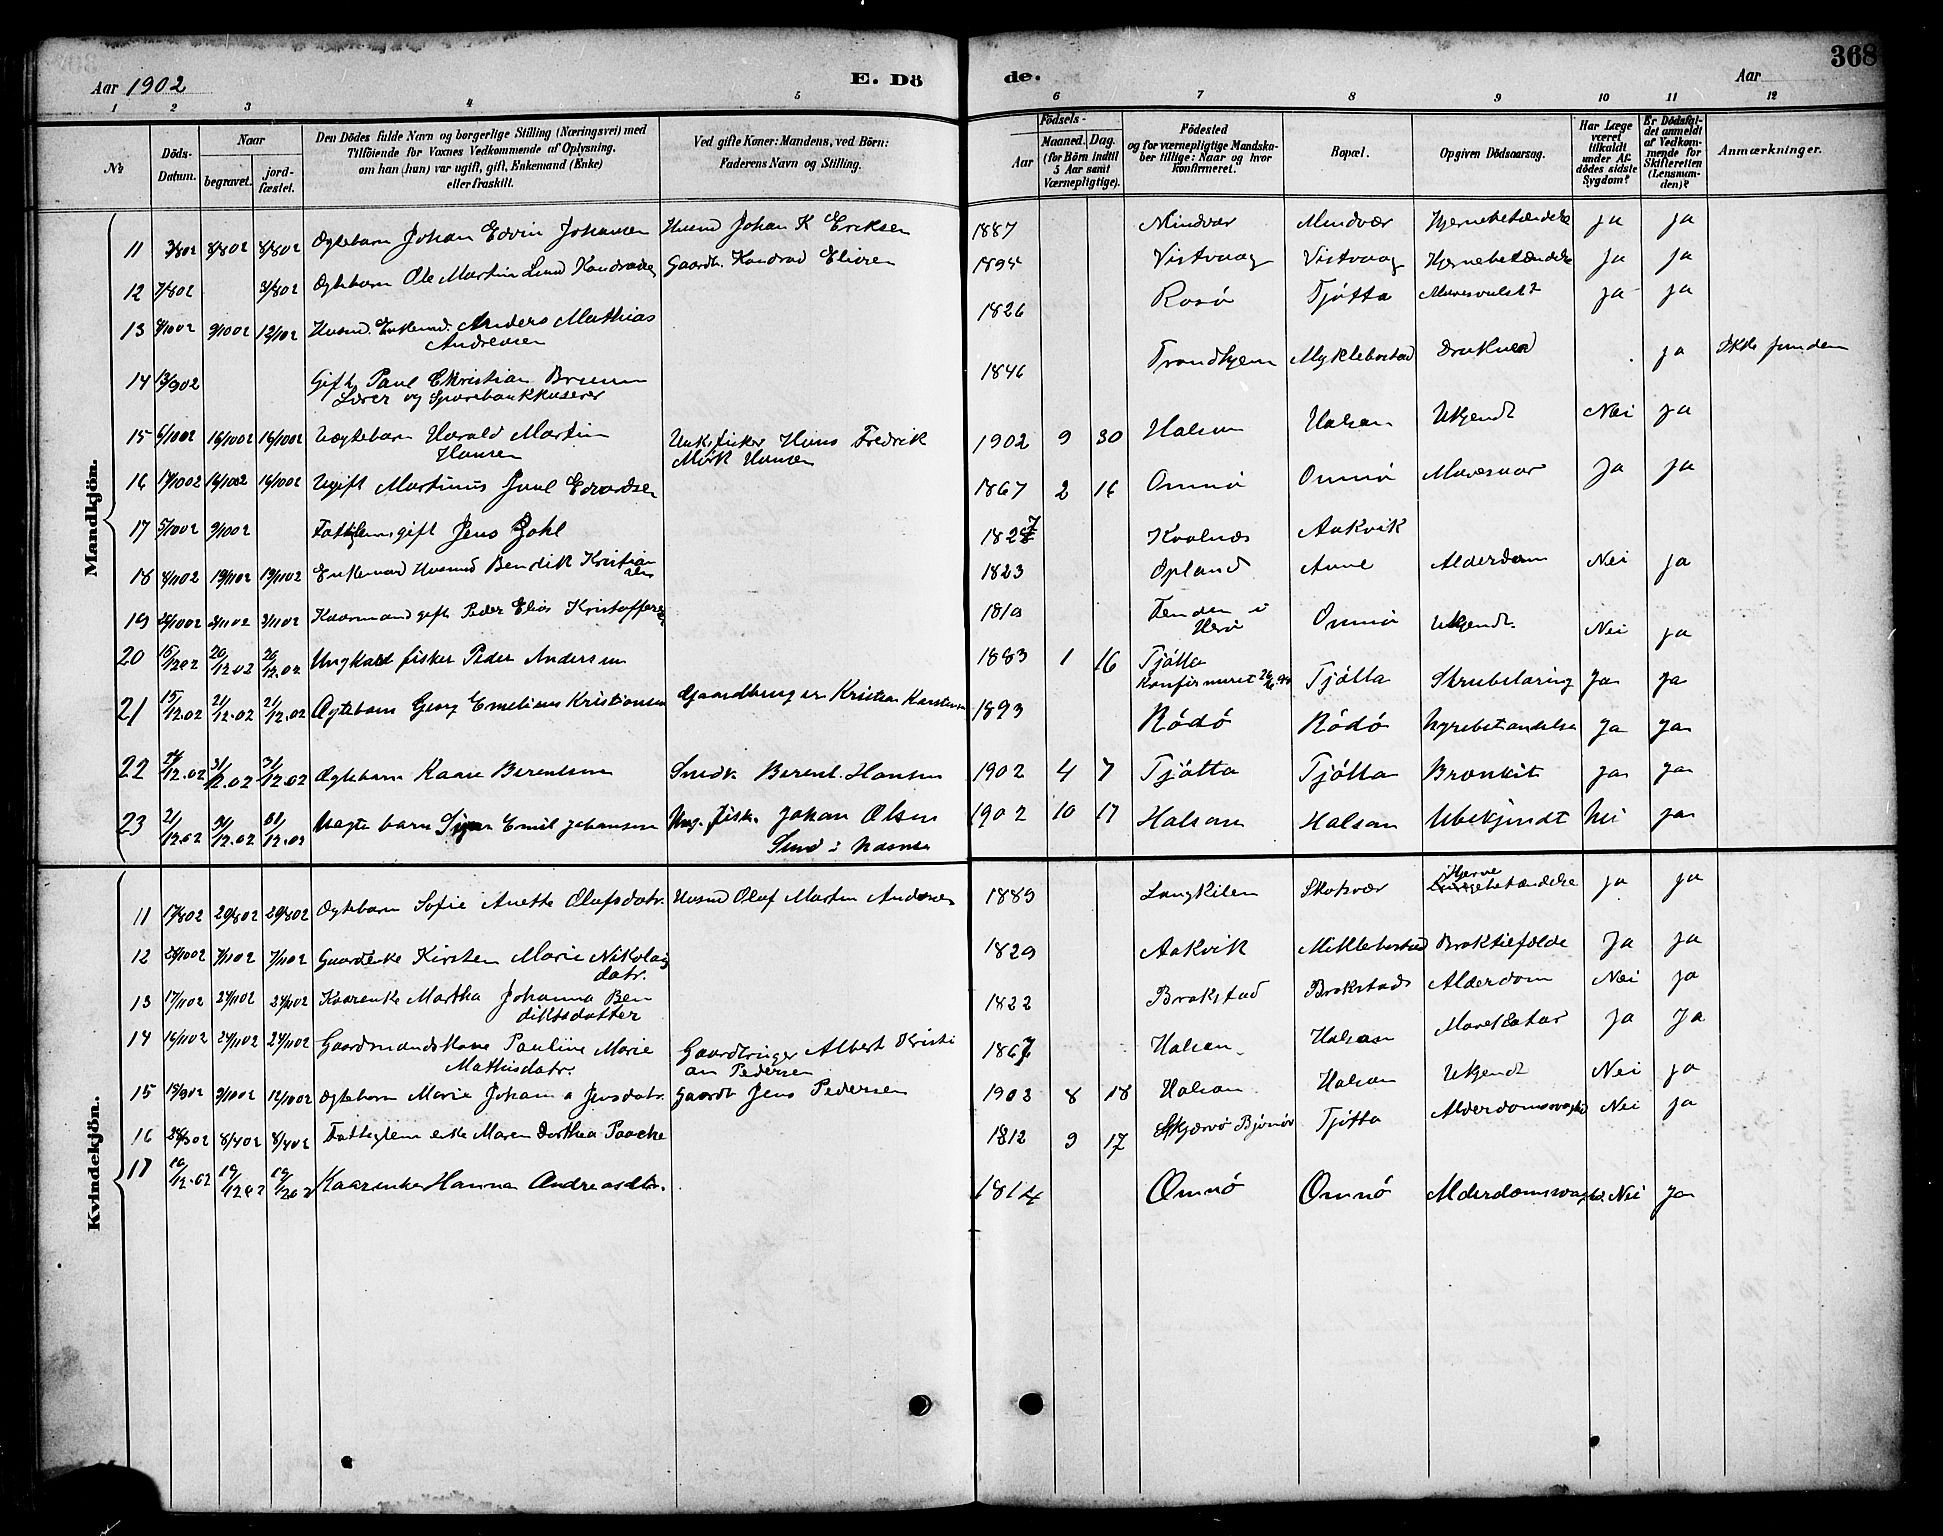 368
Aar 1902 E. Dö de. Aar
1 2 3 4 5 6 7 8 9 10 11 12
№ Döds-Datum. Naar begravet. jord-fæstet. Den Dödes fulde Navn og borgerlige Stilling (Næringsvei) med Tilföiende for Voxnes Vedkommende af Oplysning, om han (hun) var ugift, gift, Enkemand (Enke) eller fraskilt. Ved gifte Koner: Mandens, ved Börn: Faderens Navn og Stilling. Födsels- Aar Maaned. Dag. (for Börn indtil 5 Aar samt Værnepligtige). Födested og for værnepligtige Mandskaber tillige: Naar og hvor konfirmeret. Bopæl. Opgiven Dödsaarsag. Har Læge været tilkaldt under Afdödes sidste Sygdom? Er Dödsfaldet anmeldt af Vedkommende for Skifteretten (Lensmanden)? Anmærkninger.
Mandkjön.
11 3/8 02 8/8 02 8/8 02 Ægtebarn Johan Edvin Johansen Husmd Johan K Eriksen 1887 Mindvær Mindvær Hjernebetændelse ja ja
12 7/8 02 31/8 02 Ægtebarn Ole Martin Lund Kondradsen Gaardb. Kondrad Eliasen 1894 Vistvaag Vistvaag Hjernebetændelse ja ja
13 4/10 02 9/10 02 12/10 02 Husmd. Enkemd. Anders Mathias Andreasen 1826 Rosö Tjötta Mavesvulst? ja ja
14 13/9 02 Gift Paul Christian Bruun Lærer og Sparebankkaserer 1846 Trondhjem Myklebostad Druknet ja Ikke funden
15 6/10 02 16/10 02 16/10 02 Uægtebarn Harald Martin Hansen Unk. fisker Hans Fredrik Mørk Hansen 1902 9 30 Halsan Halsan Ukjendt Nei ja
16 14/10 02 16/10 02 16/10 02 Ugift Martinus Juul Edvardsen 1867 2 16 Omnö Omnö Mavesaar Ja ja
17 5/10 02 9/10 02 Fattiglem, gift Jens Dahl 1827 Kvalnæs Aakvik
18 4/11 02 19/11 02 19/11 02 Enkemand Husmd Bendik Kristiansen 1823 Opland Aune Alderdom Nei ja
19 26/10 02 2/11 02 2/11 02 Kaarmand gift Peder Elias Kristoffersen 1819 Tenden i Herö Omnö Ukjendt. Nei ja
20 15/12 02 26/12.02 26/12.02 Ungkarl fisker Peder Andersen 1883 1 16 Tjötta Konfirmeret Tjötta Strubetæring Ja ja
21 15/12.02 21/12.02 21/12.02 Ægtebarn Georg Emelius Kristiansen Gaardbruger Kristian Karstensen 1893 Rödö Rödö Nyrebetændelse Ja ja
22 24/12.02 31/12.02 31/12.02 Ægtebarn Kaare Berentsen Smdk Berent Hansen 1902 4 7 Tjötta Tjötta Bronkit ja ja
23 21/12.02 31/12.02 31/12.02 Uægte barn Emil Johansen Ung. fisk. Johan Olsen Sund i Næsna 1902 10 17 Halsan Halsan Ubekjendt Nei ja
Kvindekjön.
11 17/8 02 29/8 02 29/8 02 Ægtebarn Sofie Anette Olufsdatr. Husmd Oluf Martin Andersen 1889 Langkilen Skotsvær Hjernebetændelse ja ja
12 24/10 02 7/11 02 7/11 02 Gaardenke Kirsten Marie Nikolaisdatr. 1829 Aakvik Miklebostad Braktilfælde Ja ja
13 17/11 02 24/11 02 24/11 02 Kaarenke Martha Johanna Bendiktsdatter 1822 Brakstad Brakstad Alderdom Nei ja
14 16/11 02 24/11 02 24/11 02 Gaardmandskone Pauline Marie Mathisdatr. Gaardbruger Albert Kristian Pedersen 1867 Halsan. Halsan Mavekatar Ja Ja
15 13/9 02 9/10 02 12/10 02 Ægtebarn Marie Johana Jensdatr. Gaardb Jens Pedersen 1902 8 18 Halsan Halsan Ukjendt Nei ja
16 28/3 02 8/4 02 8/4 02 Fattiglem enke Maren Dorthea Paacke 1812 9 17 Skjærvö Bjørnör Tjötta Alderdomssvaghed Nei ja
17 10/12.02 19/12 02 19/12 02 Kaarenke Hanna Andreasdtr. 1814 Omnö Omnö Alderdomssvaghed. Nei ja